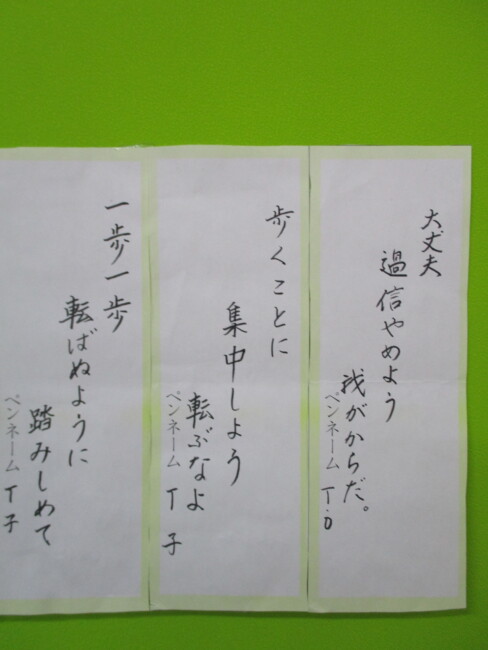 大丈夫
過信やめよう
我がからだ。
ペンネーム T.O
歩くことに
集中しよう
転ぶなよ
ペンネーム T子
一歩一歩
転ばぬように
踏みしめて
ペンネーム T子